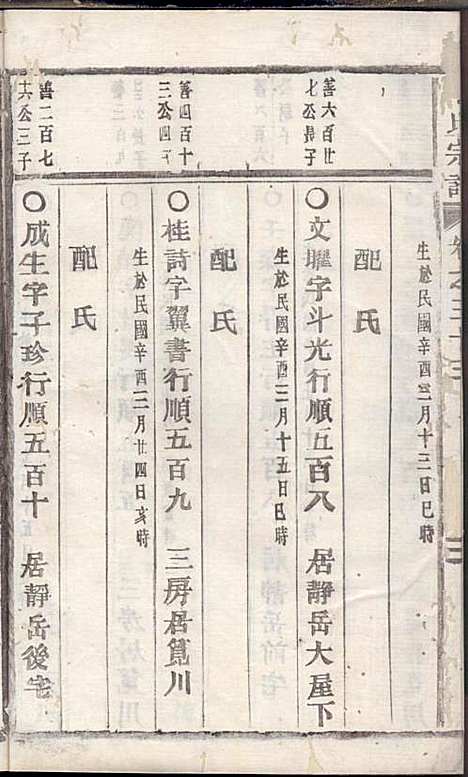 氏宗譜 卷之三十三
生於民國辛酉三月十三日巳時
配氏
善六百廿
七公長子
○文耀字斗光行順五百八 居靜岳大屋下
生於民國辛酉三月十五日巳時
配氏
善四百十
三公四子
○桂詩字翼書行順五百九 三房居筧川
生於民國辛酉三月廿四日亥時
配氏
善二百七
十六公三子
○成生字子珍行順五百十 居靜岳後宅